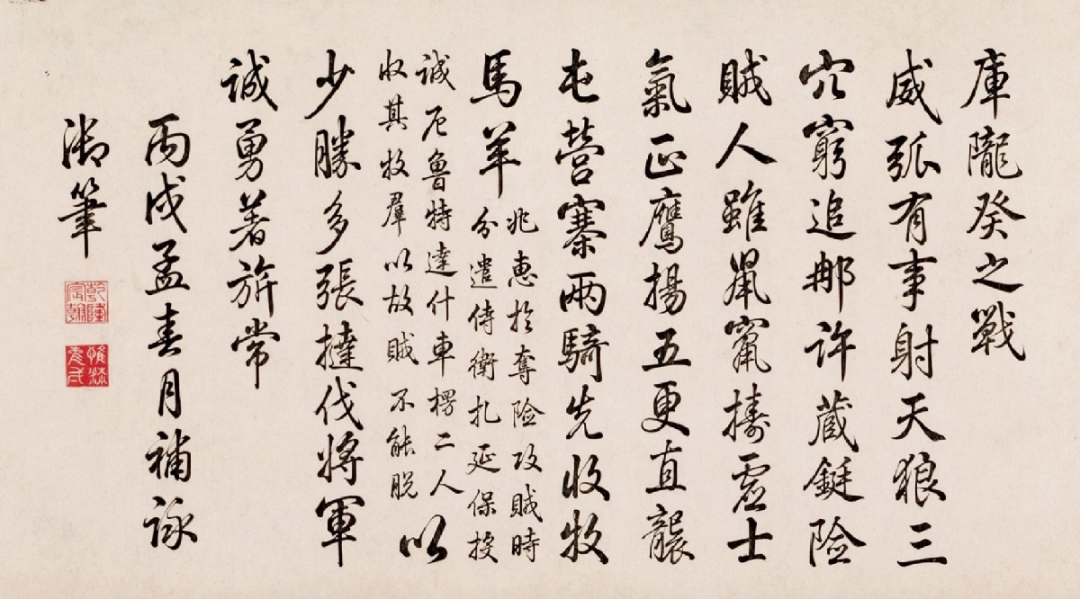 庫隴癸之戰
威弧有事射天狼三
穴窮追那許藏鋌險
賊人雖鼠竄擣虛士
氣正鷹揚五更直襲
屯營寨兩騎先收牧
馬羊
兆惠於奪險攻賊時
分遣侍衛扎延保投
誠厄魯特達什車楞二人
收其牧羣以故賊不能脫
以
少勝多張撻伐將軍
誠勇著旂常
丙戌孟春月補詠
御筆
乾隆宸翰
惟精惟一